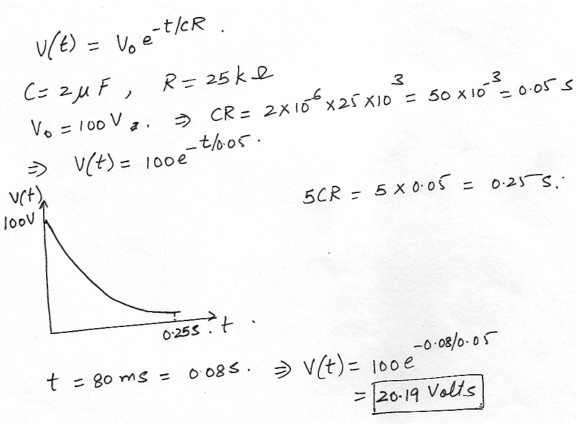 V(t) = V₀ e^(-t/CR) .
C = 2 μF , R = 25 k Ω
V₀ = 100V . ⇒ CR = 2 × 10^-6 × 25 × 10^3 = 50 × 10^-3 = 0.05 s
⇒ V(t) = 100e^(-t/0.05) .
5CR = 5 × 0.05 = 0.25 s.
V(t)
100V
0.25s . t .
t = 80 ms = 0.08s. ⇒ V(t) = 100e^(-0.08/0.05)
= 20.19 Volts